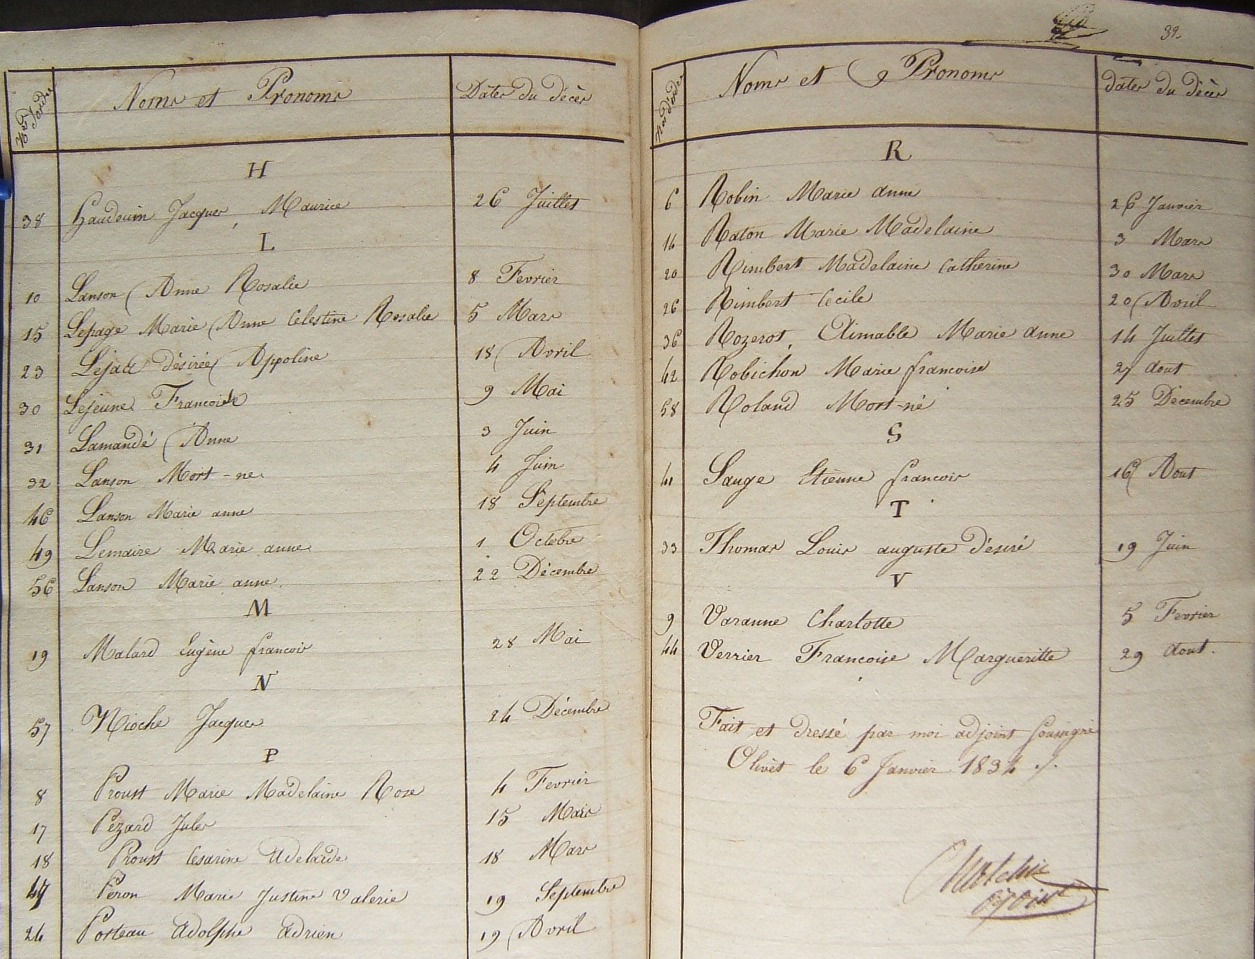 Nos d'ordre Noms et Prenoms Dates du décès
H
38 Haudouin Jacques, Maurice 26 Juillet
L
10 Lanson Anne Rosalie 8 Fevrier
15 Lepage Marie Anne Celestine Rosalie 5 Mars
23 Lejale désirée Appoline 18 Avril
30 Lejeune Francoise 9 Mai
31 Lamandé Anne 3 Juin
32 Lanson Mort-né 4 Juin
46 Lanson Marie anne 18 Septembre
49 Lemaire Marie anne 1 Octobre
56 Lanson Marie anne. 22 Décembre
M
19 Malard Eugène francois 28 Mai
N
57 Nioche Jacques 24 Décembre
P
8 Proust Marie Madelaine Rose 4 Fevrier
17 Pezard Jules 15 Mars
18 Proust Cesarine Adelaide 18 Mars
47 Peron Marie Justine Valerie 19 Septembre
24 Posteau Adolphe Adrien 19 Avril
39.
Nos d'ordre Noms et Prenoms dates du décès
R
6 Robin Marie anne 26 Janvier
16 Raton Marie Madelaine 3 Mars
20 Rimbert Madelaine Catherine 30 Mars
26 Rimbert Cecile 20 Avril
36 Rozerot, Aimable Marie anne 14 Juillet
42 Robichon Marie francoise 27 Aout
58 Roland Mort-né 25 Décembre
S
41 Sauge Etienne francois 16 Aout
T
33 Thomas Louis auguste Désiré 19 Juin
V
9 Varanne Charlotte 5 Fevrier
44 Verrier Francoise Margueritte 29 Aout.
Fait et dressé par moi adjoint soussigné
Olivet le 6 Janvier 1834 ./.